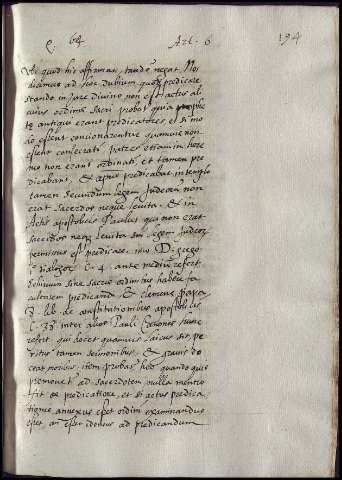 q. 64 Art. 6 194
quid hic affirmat, tandem negat No
dicamus ad hoc dubium quod predicare
stando in jure divino non est actus ali
cuius ordinis sacri probat quia prophe
te antiqui erant predicatores, et si mo
do essent concionarentur quamvis non
essent consecrati, patres etiam in here
mo non erant ordinati, et tamen pre
dicabant, & predicabat in templo
tamen secundum legem Judeorum non
erat sacerdos neque levita. & in
Actis apostolicis Paulus qui non erat
sacerdos neque levita legem Judeorum
permissus est predicare. D. Grego
dialogor C. 4. ante medium refert
sine sacris ordinibus habere fa
cultatem predicandi & Clemens papa
lib. de constitutionibus apostolicis
C. inter alios Pauli Canones hunc
refert, qui docet quamvis laicus sit, pe
ritus tamen sermonibus, & gravis do
ceat moribus. item probat hoc quando quis
promovet ad sacerdotem nulla mentio
fit de predicatione, et si actus predica
tionis annexus esset ordini examinandus
esset, an esset idoneus ad predicandum